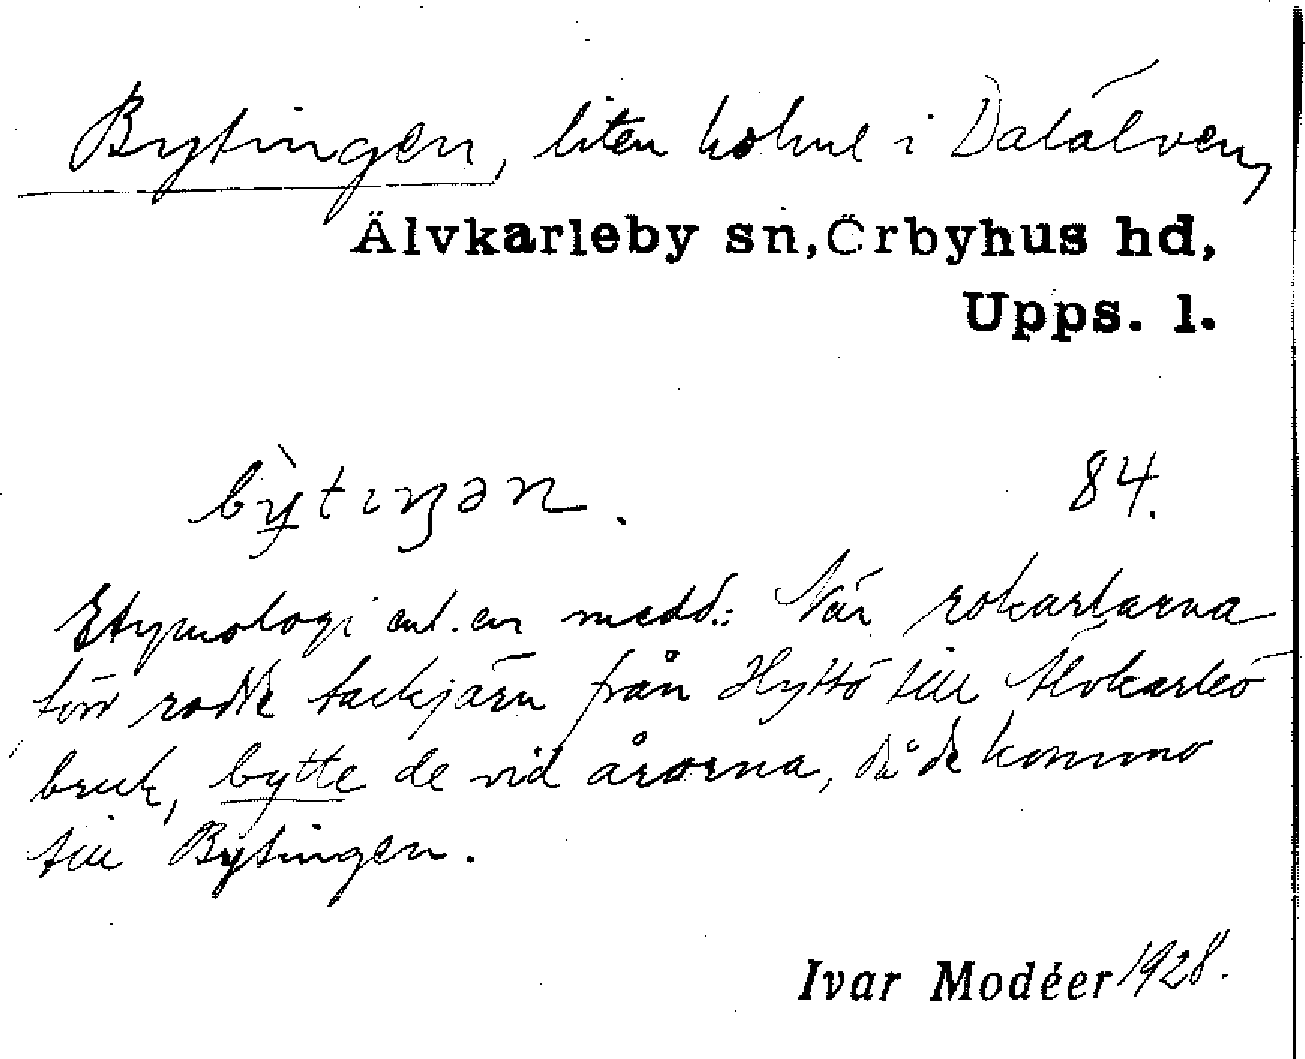 Bytingen, liten holme i Dalälven,
Älvkarleby sn, Örbyhus hd,
Upps. l.
bỳtɩŋən. 84.
Etymologi enl. en medd.: När rokarlarna
förr rodde tackjärn från Hyttö till Älvkarleö
bruk, bytte de vid årorna, då de kommo
till Bytingen.
Ivar Modéer 1928.